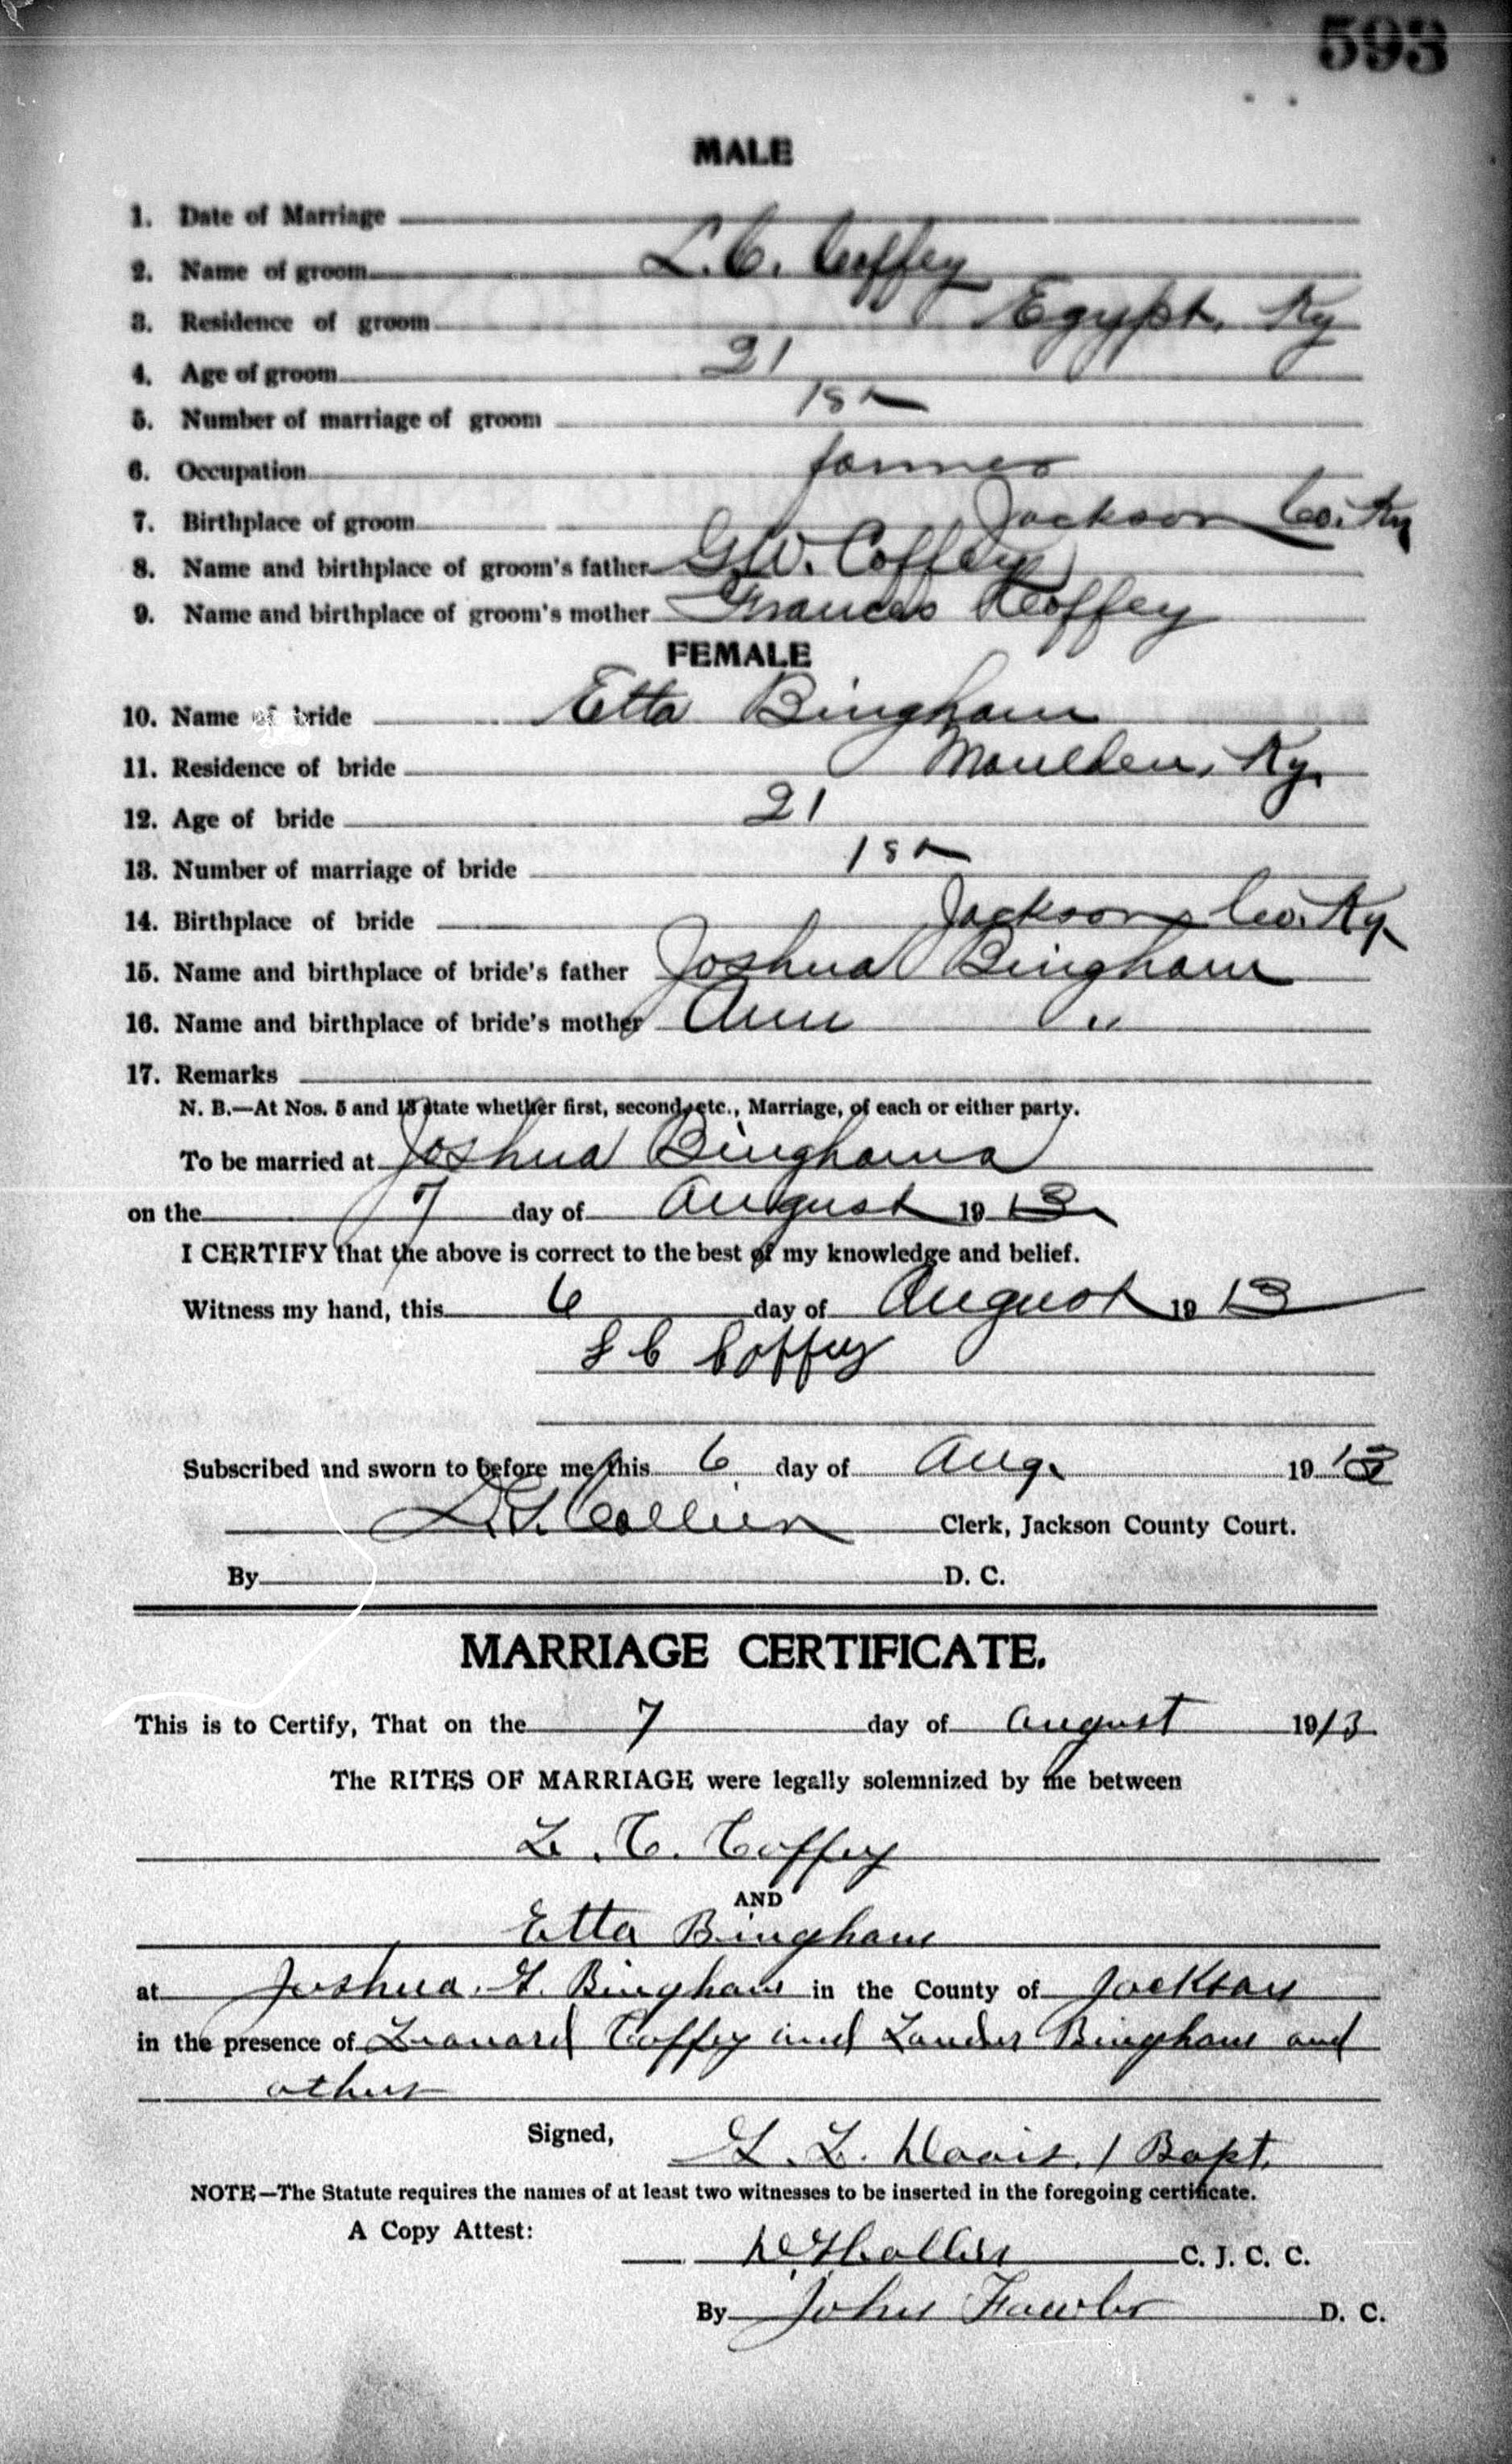 593
MALE
1. Date of Marriage
2. Name of groom L.C. Coffey
3. Residence of groom Egypt, Ky
4. Age of groom 21
5. Number of marriage of groom 1st
6. Occupation farmer
7. Birthplace of groom Jackson Co. Ky
8. Name and birthplace of groom's father G.W. Coffey
9. Name and birthplace of groom's mother Frances Coffey
FEMALE
10. Name of bride Etta Bingham
11. Residence of bride Maulden, Ky.
12. Age of bride 21
13. Number of marriage of bride 1st
14. Birthplace of bride Jackson Co. Ky
15. Name and birthplace of bride's father Joshua Bingham
16. Name and birthplace of bride's mother Ann "
17. Remarks
N. B.—At Nos. 5 and 13 state whether first, second, etc., Marriage, of each or either party.
To be married at Joshua Binghams
on the 7 day of August 1913
I CERTIFY that the above is correct to the best of my knowledge and belief.
Witness my hand, this 6 day of August 1913
L C Coffey
Subscribed and sworn to before me this 6 day of Aug. 1913
Collier Clerk, Jackson County Court.
By D. C.
MARRIAGE CERTIFICATE.
This is to Certify, That on the 7 day of August 1913
The RITES OF MARRIAGE were legally solemnized by me between
L. C. Coffey
AND
Etta Bingham
at Joshua G. Bingham in the County of Jackson
in the presence of Leonard Coffey and Lander Bingham and
others
Signed, L. Davis / Bapt.
NOTE—The Statute requires the names of at least two witnesses to be inserted in the foregoing certificate.
A Copy Attest:
Collier C. J. C. C.
By John Fowler D. C.